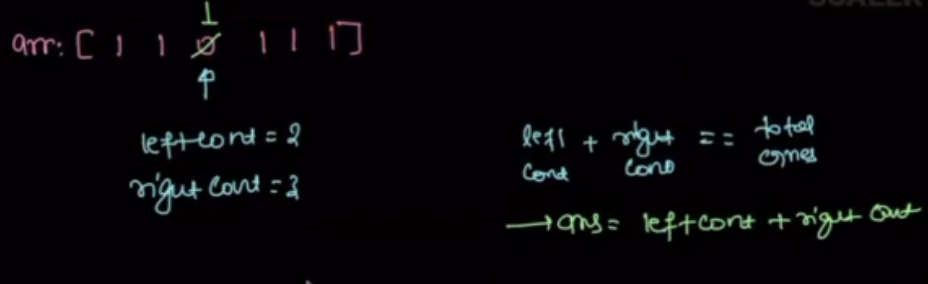 1
arr: [ 1 1 0 1 1 1 ]
left cont = 2
right cont = 3
left cont + right cont == total ones
→ ans = left cont + right cont